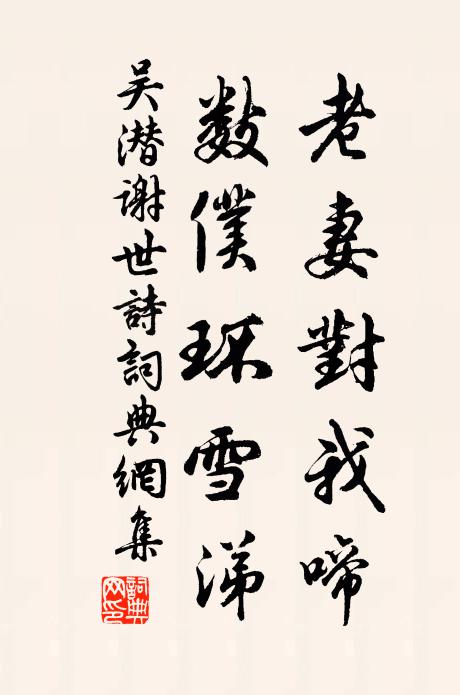 老妻對我啼
數僕环雪涕
吴潜謝世詩詞典網集
詞典網印